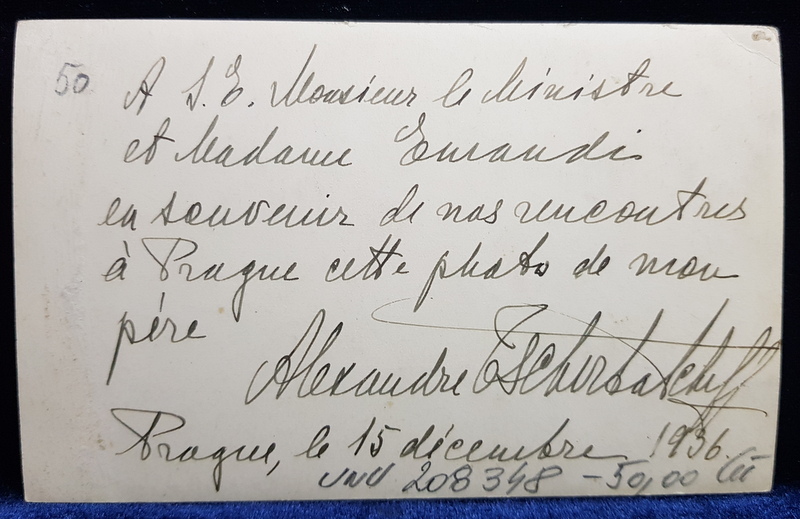 50
A S. E. Monsieur le Ministre
et Madame Emandi
en souvenir de nos rencontres
à Prague cette photo de mon
père
Alexandre Tscherbatscheff
Prague, le 15 décembre 1936.
208348 – 50,00 lei